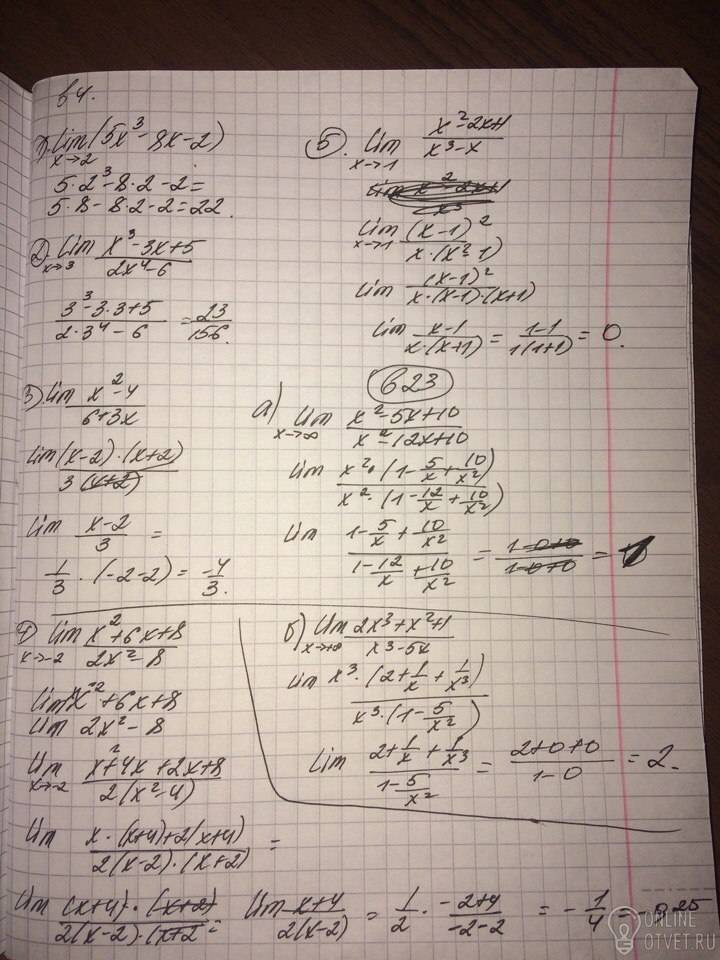 в4.
1) lim (5x³-8x-2)
x→2
5·2³-8·2-2=
5·8-8·2-2=22.
2) lim x³-3x+5 / 2x⁴-6
x→3
3³-3·3+5 / 2·3⁴-6 = 23/156.
3) lim x²-4 / 6+3x
lim (x-2)·(x+2) / 3(x+2)
lim x-2 / 3 =
1/3 · (-2-2) = -4/3.
4) lim x²+6x+8 / 2x²-8
x→-2
lim x²+6x+8
lim 2x²-8
lim x²+4x+2x+8 / 2(x²-4)
x→-2
lim x·(x+4)+2(x+4) / 2(x-2)·(x+2) =
lim (x+4)·(x+2) / 2(x-2)·(x+2 = lim x+4 / 2(x-2) = 1/2 · -2+4 / -2-2 = -1/4 = -0,25
5). lim x²-2x+1 / x³-x
x→1
lim x²-2x+1 / x³
lim (x-1)² / x·(x²-1)
x→1
lim (x-1)² / x·(x-1)·(x+1)
lim x-1 / x·(x+1) = 1-1 / 1(1+1) = 0.
в23
а) lim x²-5x+10 / x²-12x+10
x→∞
lim x²·(1-5/x+10/x²) / x²·(1-12/x+10/x²)
lim 1-5/x+10/x² / 1-12/x+10/x² = 1-0+0 / 1-0+0 = 1
б) lim 2x³+x²+1 / x³-5x
x→+∞
lim x³·(2+1/x+1/x³) / x³·(1-5/x²)
lim 2+1/x+1/x³ / 1-5/x² = 2+0+0 / 1-0 = 2.
ONLINE
OTVET.RU